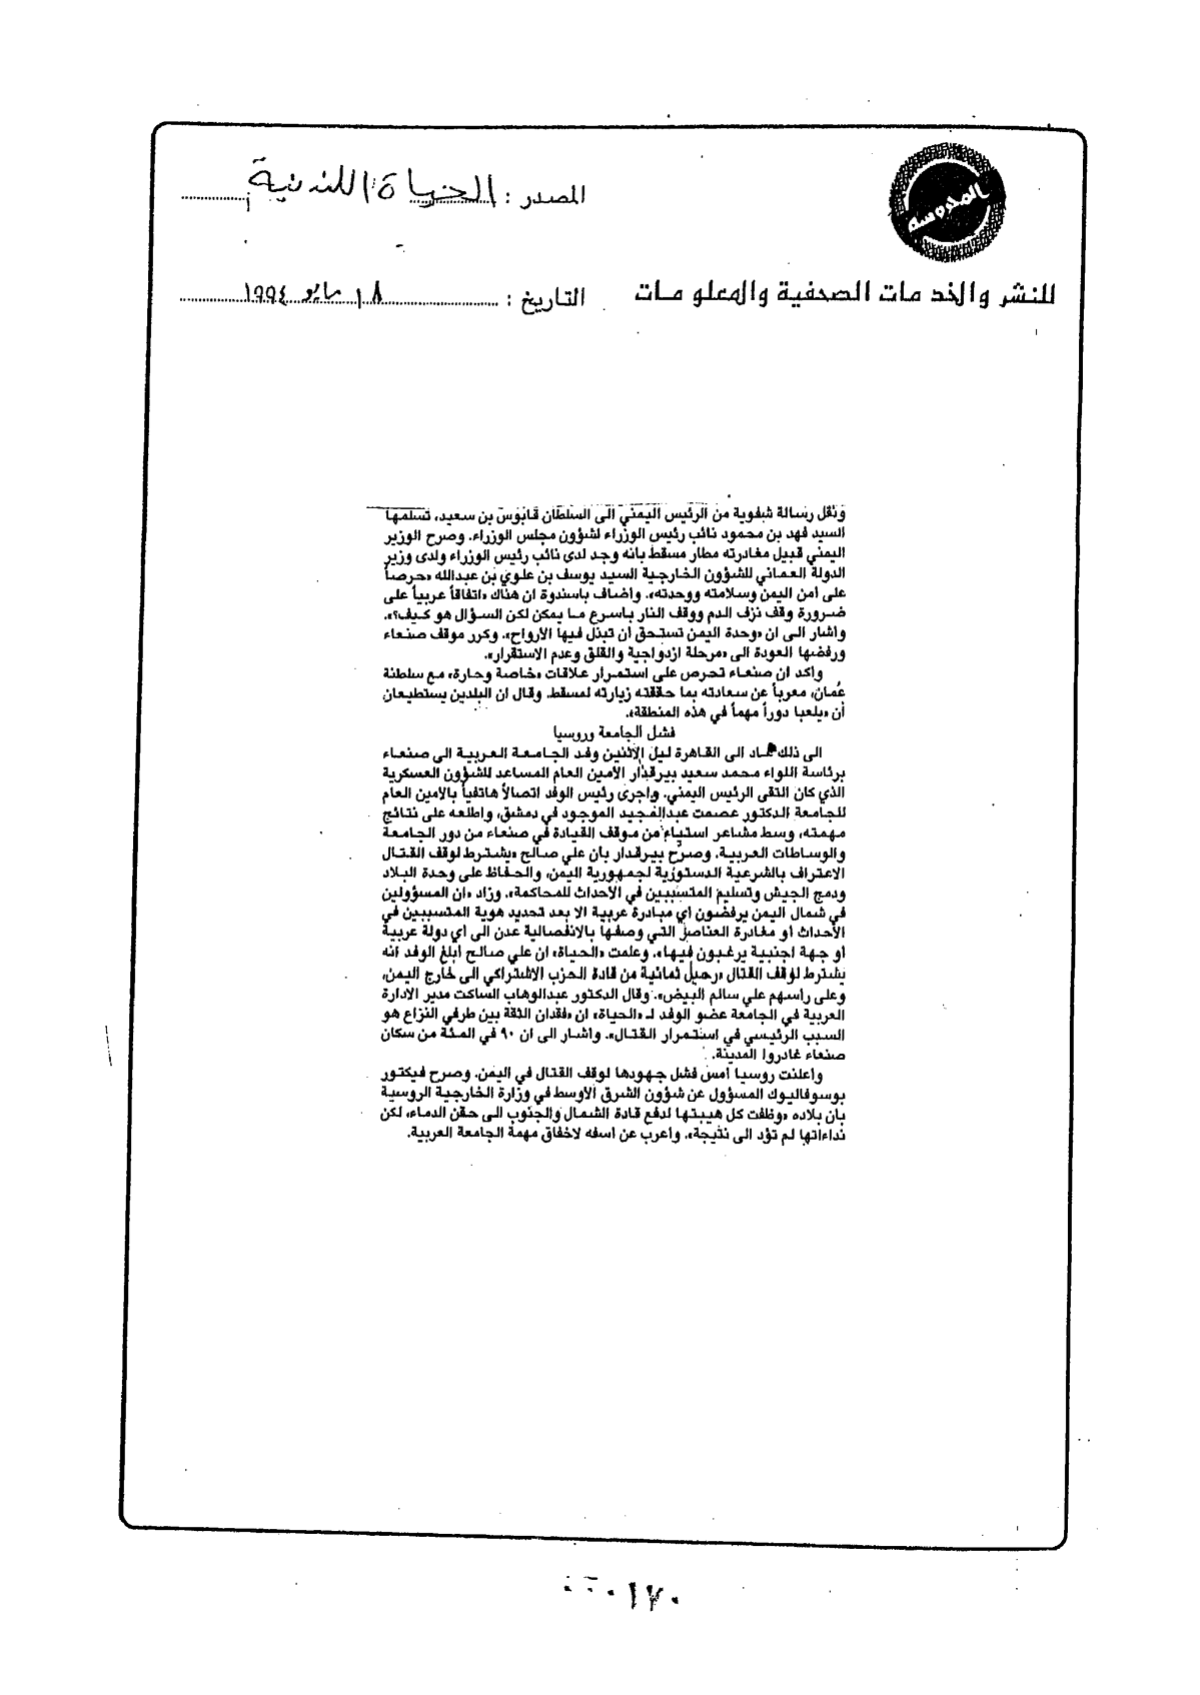 المدوسة
المصدر : الحياة اللندنية
للنشر والخدمات الصحفية والمعلومات
التاريخ : ١٨ مايو ١٩٩٤
ونقل رسالة شفوية من الرئيس اليمني الى السلطان قابوس بن سعيد، تسلمها
السيد فهد بن محمود نائب رئيس الوزراء لشؤون مجلس الوزراء. وصرح الوزير
اليمني قبيل مغادرته مطار مسقط بانه وجد لدى نائب رئيس الوزراء ولدى وزير
الدولة العماني للشؤون الخارجية السيد يوسف بن علوي بن عبدالله «حرصاً
على امن اليمن وسلامته ووحدته». واضاف باسندوة ان هناك «اتفاقاً عربياً على
ضرورة وقف نزف الدم ووقف النار باسرع ما يمكن لكن السؤال هو كيف؟».
واشار الى ان «وحدة اليمن تستحق أن تبذل فيها الأرواح». وكرر موقف صنعاء
ورفضها العودة الى «مرحلة ازدواجية والقلق وعدم الاستقرار».
واكد ان صنعاء تحرص على استمرار علاقات «خاصة وحارة» مع سلطنة
عُمان، معرباً عن سعادته بما حققته زيارته لمسقط. وقال ان البلدين يستطيعان
أن «يلعبا دوراً مهماً في هذه المنطقة».
فشل الجامعة وروسيا
الى ذلك عاد الى القاهرة ليل الاثنين وفد الجامعة العربية الى صنعاء
برئاسة اللواء محمد سعيد بيرقدار الأمين العام المساعد للشؤون العسكرية
الذي كان التقى الرئيس اليمني. واجرى رئيس الوفد اتصالاً هاتفياً بالامين العام
للجامعة الدكتور عصمت عبدالمجيد الموجود في دمشق، واطلعه على نتائج
مهمته، وسط مشاعر استياء من موقف القيادة في صنعاء من دور الجامعة
والوساطات العربية. وصرّح بيرقدار بان علي صالح «يشترط لوقف القتال
الاعتراف بالشرعية الدستورية لجمهورية اليمن، والحفاظ على وحدة البلاد
ودمج الجيش وتسليم المتسببين في الأحداث للمحاكمة». وزاد «ان المسؤولين
في شمال اليمن يرفضون اي مبادرة عربية الا بعد تحديد هوية المتسببين في
الأحداث أو مغادرة العناصر التي وصفها بالانفصالية عدن الى اي دولة عربية
او جهة اجنبية يرغبون فيها». وعلمت «الحياة» ان علي صالح أبلغ الوفد انه
يشترط لوقف القتال «رحيل ثمانية من قادة الحزب الاشتراكي الى خارج اليمن،
وعلى راسهم علي سالم البيض». وقال الدكتور عبدالوهاب الساكت مدير الادارة
العربية في الجامعة عضو الوفد لـ «الحياة» ان «فقدان الثقة بين طرفي النزاع هو
السبب الرئيسي في استمرار القتال». واشار الى ان ٩٠ في المئة من سكان
صنعاء غادروا المدينة.
واعلنت روسيا امس فشل جهودها لوقف القتال في اليمن. وصرح فيكتور
بوسوفاليوك المسؤول عن شؤون الشرق الاوسط في وزارة الخارجية الروسية
بان بلاده «وظفت كل هيبتها لدفع قادة الشمال والجنوب الى حقن الدماء، لكن
نداءاتها لم تؤد الى نتيجة». واعرب عن اسفه لاخفاق مهمة الجامعة العربية.